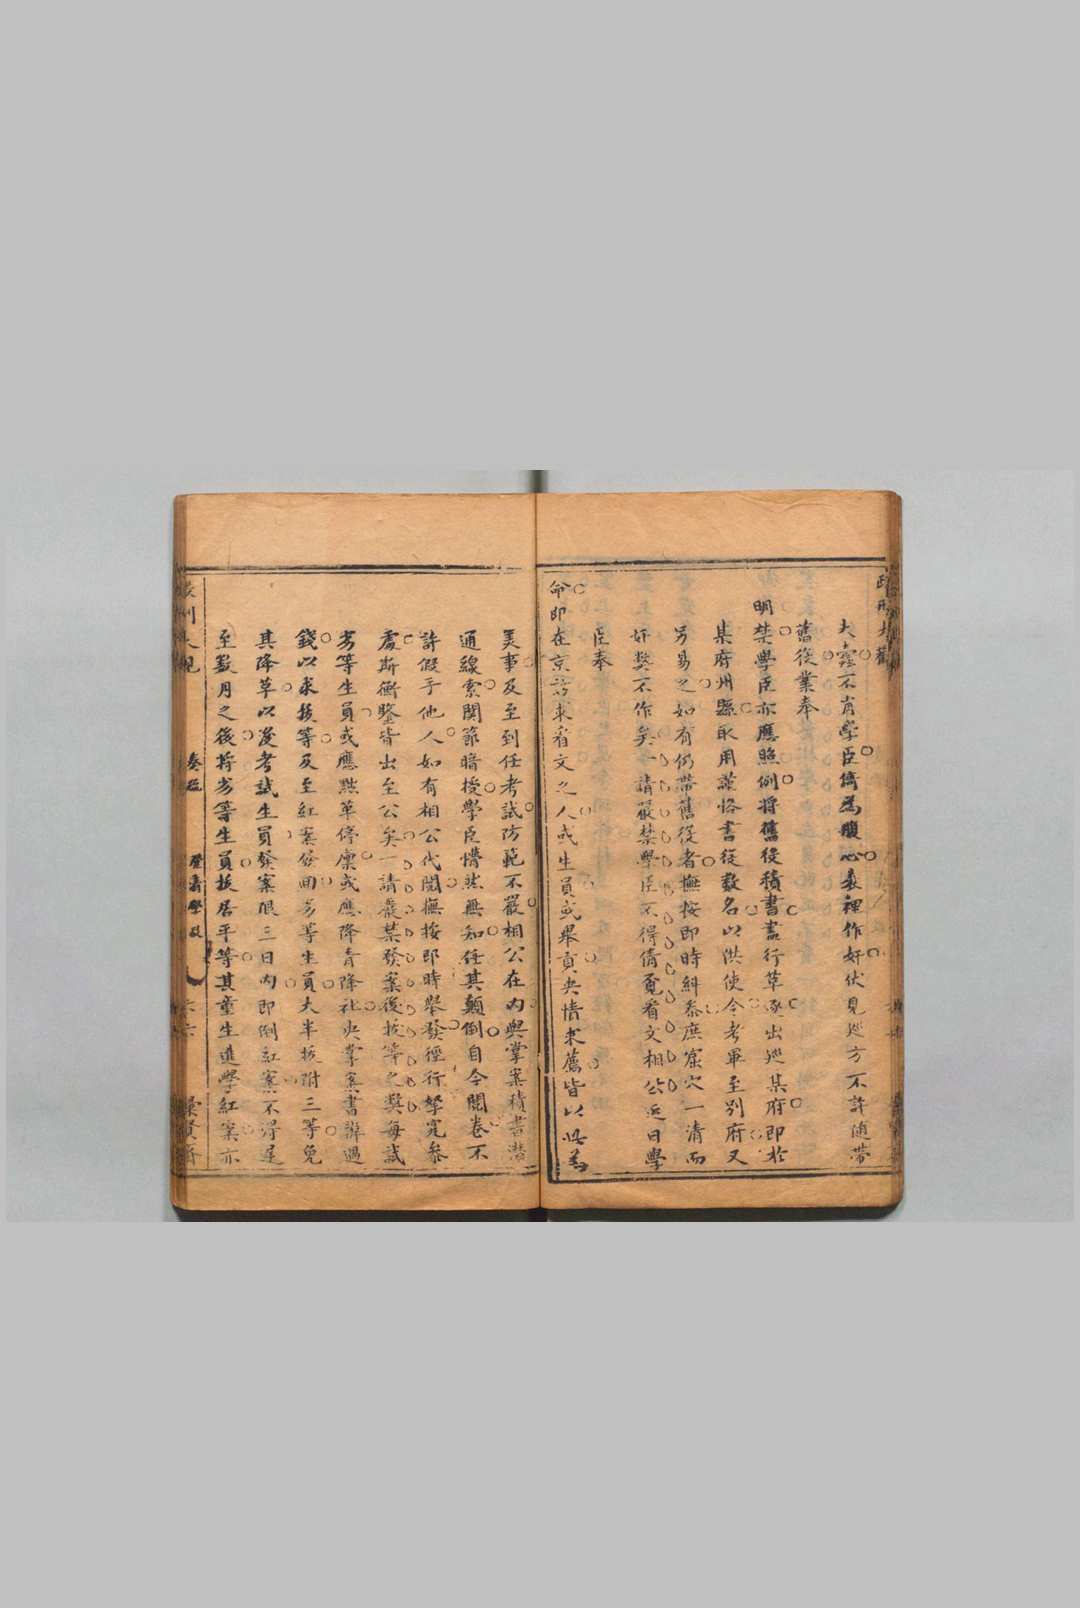 政刑大觀
大蠧不肖學臣倚爲腹心表裡作奸伏見廵方不許隨帶
舊役業奉
明禁學臣亦應照例將舊役積書盡行革逐出廵某府即於
某府州縣取用謹恪書役數名以供使令考畢至别府又
另易之如有仍帶舊役者撫按即時糾叅庶窟穴一清而
奸獘不作矣一請嚴禁學臣不得倩覔看文相公近日學
臣奉
命即在京訪求看文之人或生員或舉貢夾情求薦皆以此爲
美事及至到任考試防範不嚴相公在内與掌案積書潜
通線索関節暗授學臣懵然無知任其顛倒自今閱卷不
許假手他人如有相公代閱撫按即時舉發徑行拏究叅
處斯衡鑒皆出至公矣一請嚴禁發案後拔等之獘每試
劣等生員或應黜革停廩或應降青降社夾掌案書辦過
錢以求拔等及至紅案發回劣等生員大半拔附三等免
其降革以後考試生員發案限三日内即倒紅案不得遲
至數月之後將劣等生員拔居平等其童生進學紅案亦
政刑大觀 奏疏 釐清學政 六六 彙賢齋